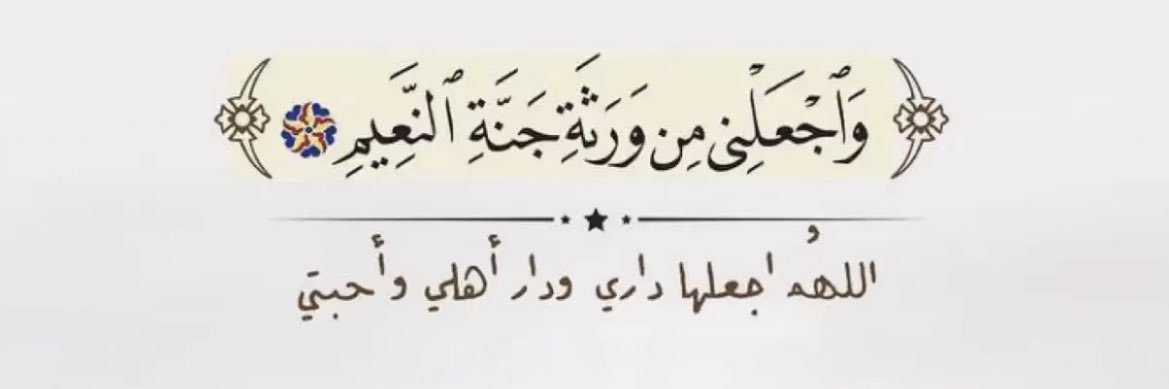 وَٱجْعَلْنِى مِن وَرَثَةِ جَنَّةِ ٱلنَّعِيمِ
اللهُم اجعلها داري ودار أهلي وأحبتي